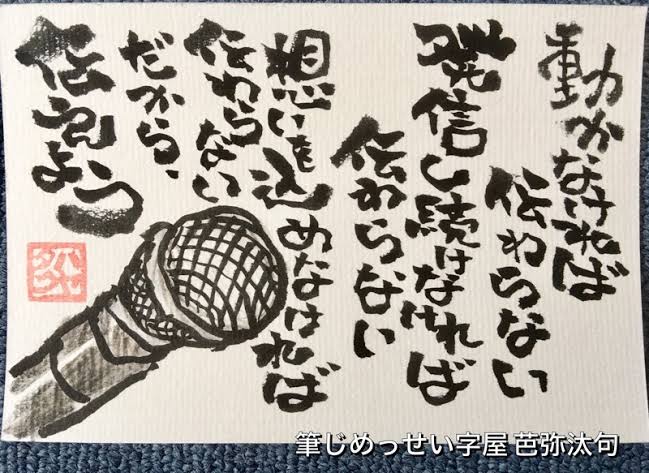 動かなければ
伝わらない
発信し続けなければ
伝わらない
想いを込めなければ
伝わらない
だから、
伝えよう
筆じめっせい字屋 芭弥汰句